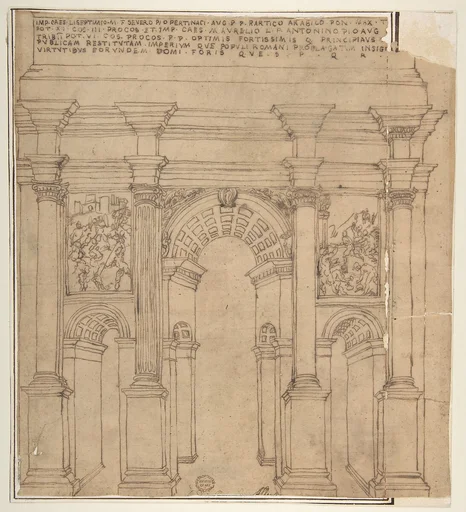 IMP. CAES. LVSEPTIMIO. M. F. SEVERO PIO PERTINACI. AVG. P. P. PARTICO ARABICO PON.
POT. XI. COC. III. PROCOS. ET. IMP. CAES. M. AVRELIO L. F. ANTONINO PIO AVG
TRIB POT. VI. COS. PROCOS. P. P. OPTIMIS FORTISSIMIS Q. PRINCIPIAVS
PVBLICAM RESTITVTAM IMPERIVM QVE POPVLI ROMANI PROPAGATVM INSIG
VIRTVTIBVS EORVNDEM DOMI FORIS QVE S P Q R